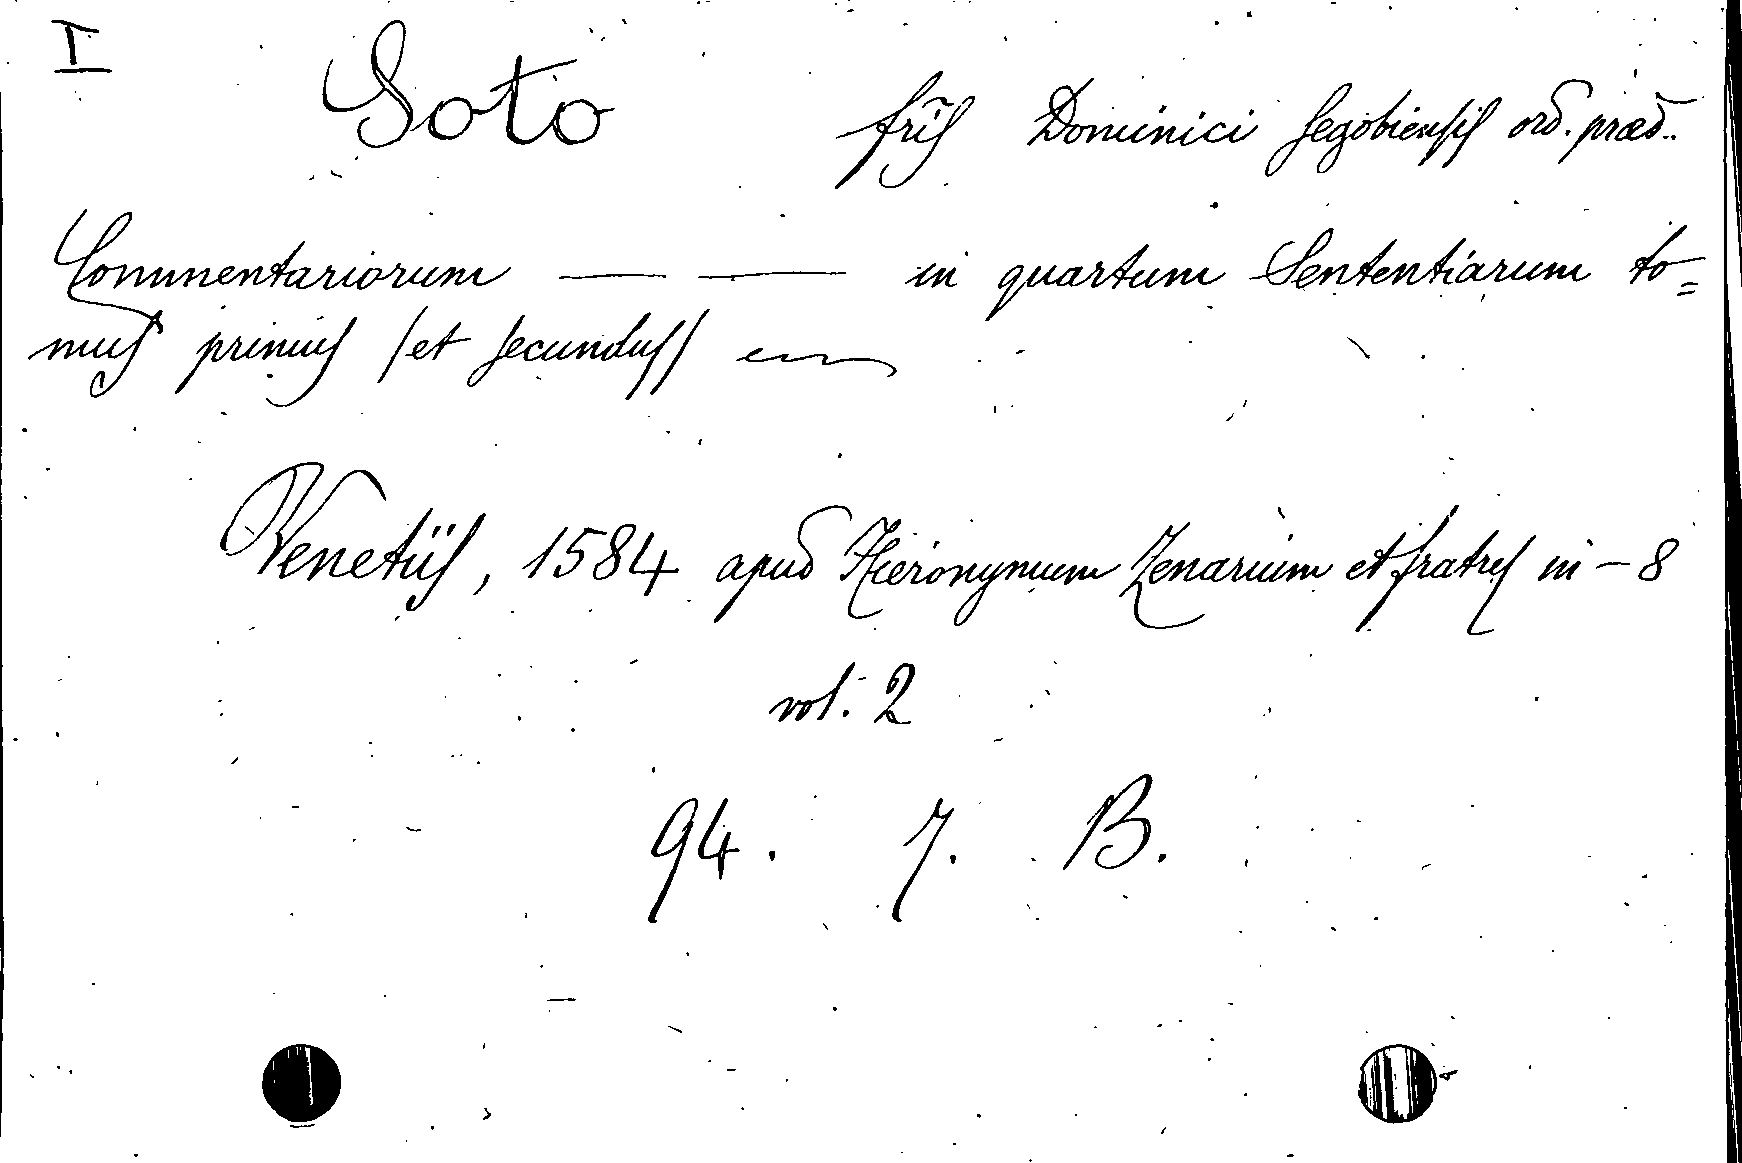 I
Soto fr̃is Dominici Segobiensis ord. præd.
Commentariorum — — in quartum Sententiarum to=
mus primus (et secundus)
Venetiis, 1584 apud Hieronymum Zenarium et fratres in-8
vol. 2
94. 7. B.